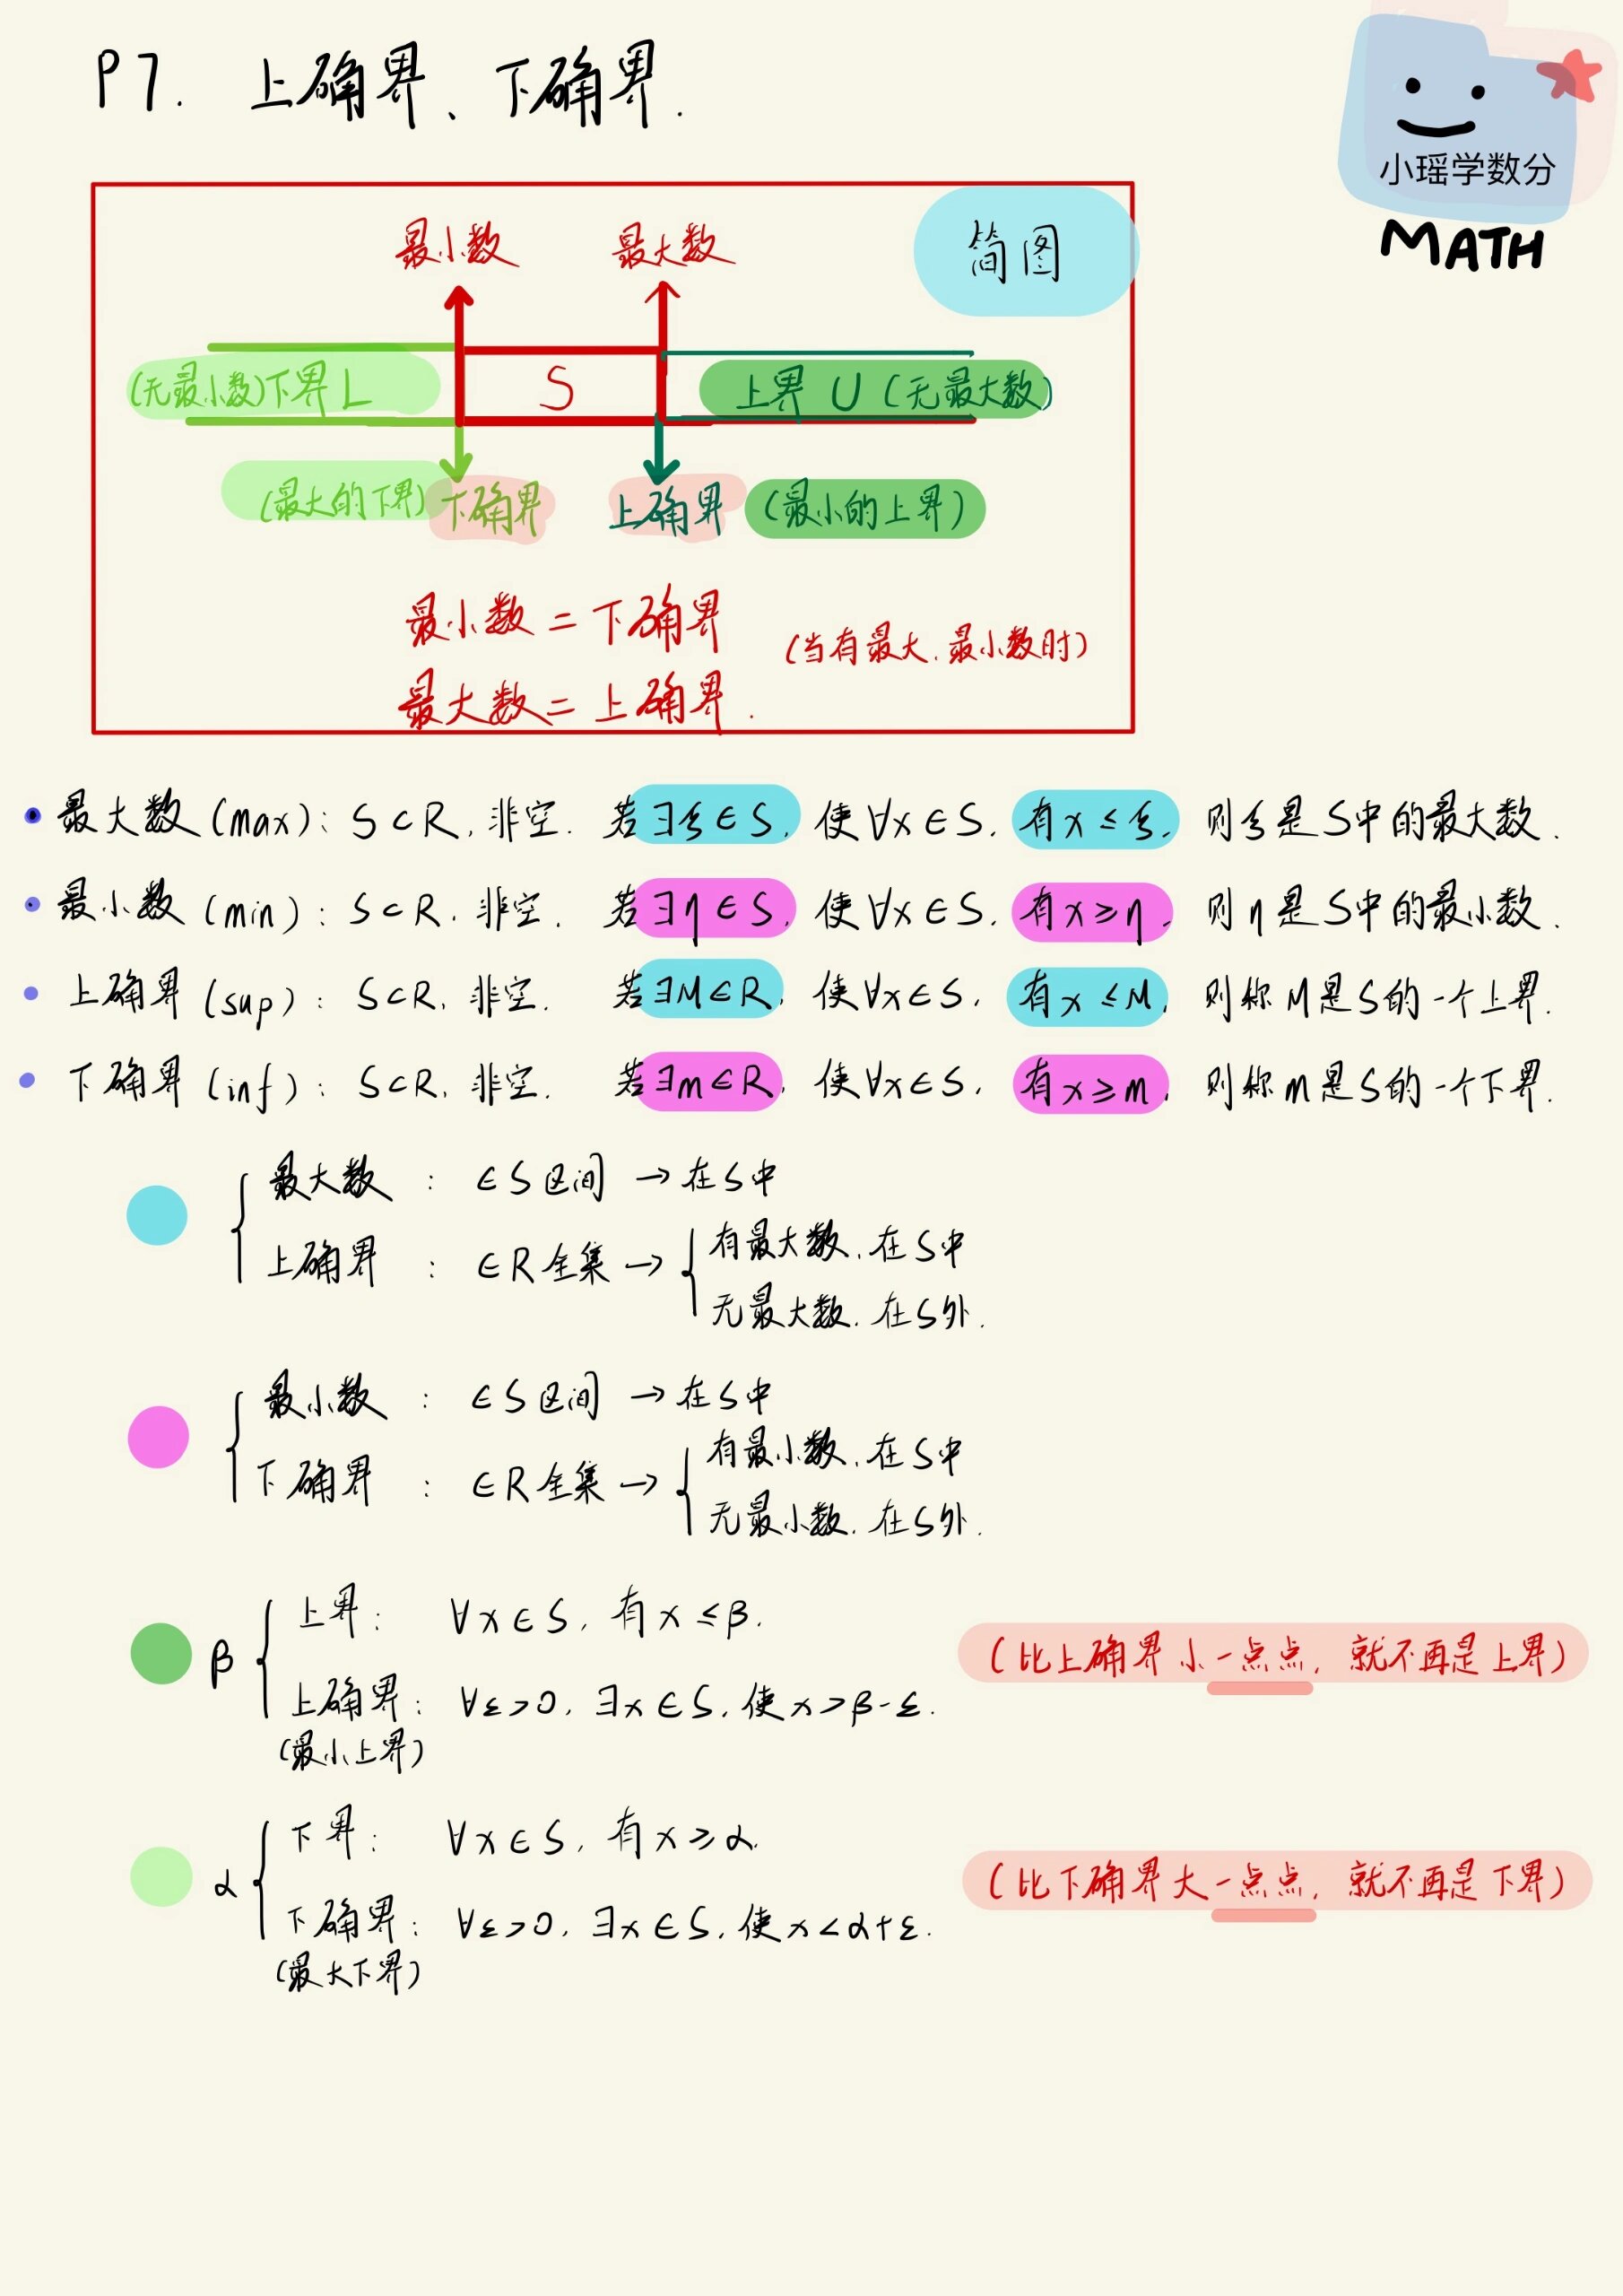 P7. 上确界、下确界.
小瑶学数分
MATH
简图
最小数 最大数
(无最小数)下界 L S 上界 U (无最大数)
(最大的下界) 下确界 上确界 (最小的上界)
最小数 = 下确界
(当有最大、最小数时)
最大数 = 上确界.
• 最大数 (max): S⊂R, 非空. 若∃ξ∈S, 使∀x∈S, 有x≤ξ, 则ξ是S中的最大数.
• 最小数 (min): S⊂R, 非空. 若∃η∈S, 使∀x∈S, 有x≥η, 则η是S中的最小数.
• 上确界 (sup): S⊂R, 非空. 若∃M∈R, 使∀x∈S, 有x≤M, 则称M是S的一个上界.
• 下确界 (inf): S⊂R, 非空. 若∃m∈R, 使∀x∈S, 有x≥m, 则称m是S的一个下界.
最大数 : ∈S区间 → 在S中
上确界 : ∈R全集 → { 有最大数, 在S中
无最大数, 在S外.
最小数 : ∈S区间 → 在S中
下确界 : ∈R全集 → { 有最小数, 在S中
无最小数, 在S外.
β { 上界: ∀x∈S, 有x≤β.
上确界: ∀ε>0, ∃x∈S, 使x>β-ε.
(最小上界)
(比上确界小一点点, 就不再是上界)
α { 下界: ∀x∈S, 有x≥α.
下确界: ∀ε>0, ∃x∈S, 使x<α+ε.
(最大下界)
(比下确界大一点点, 就不再是下界)